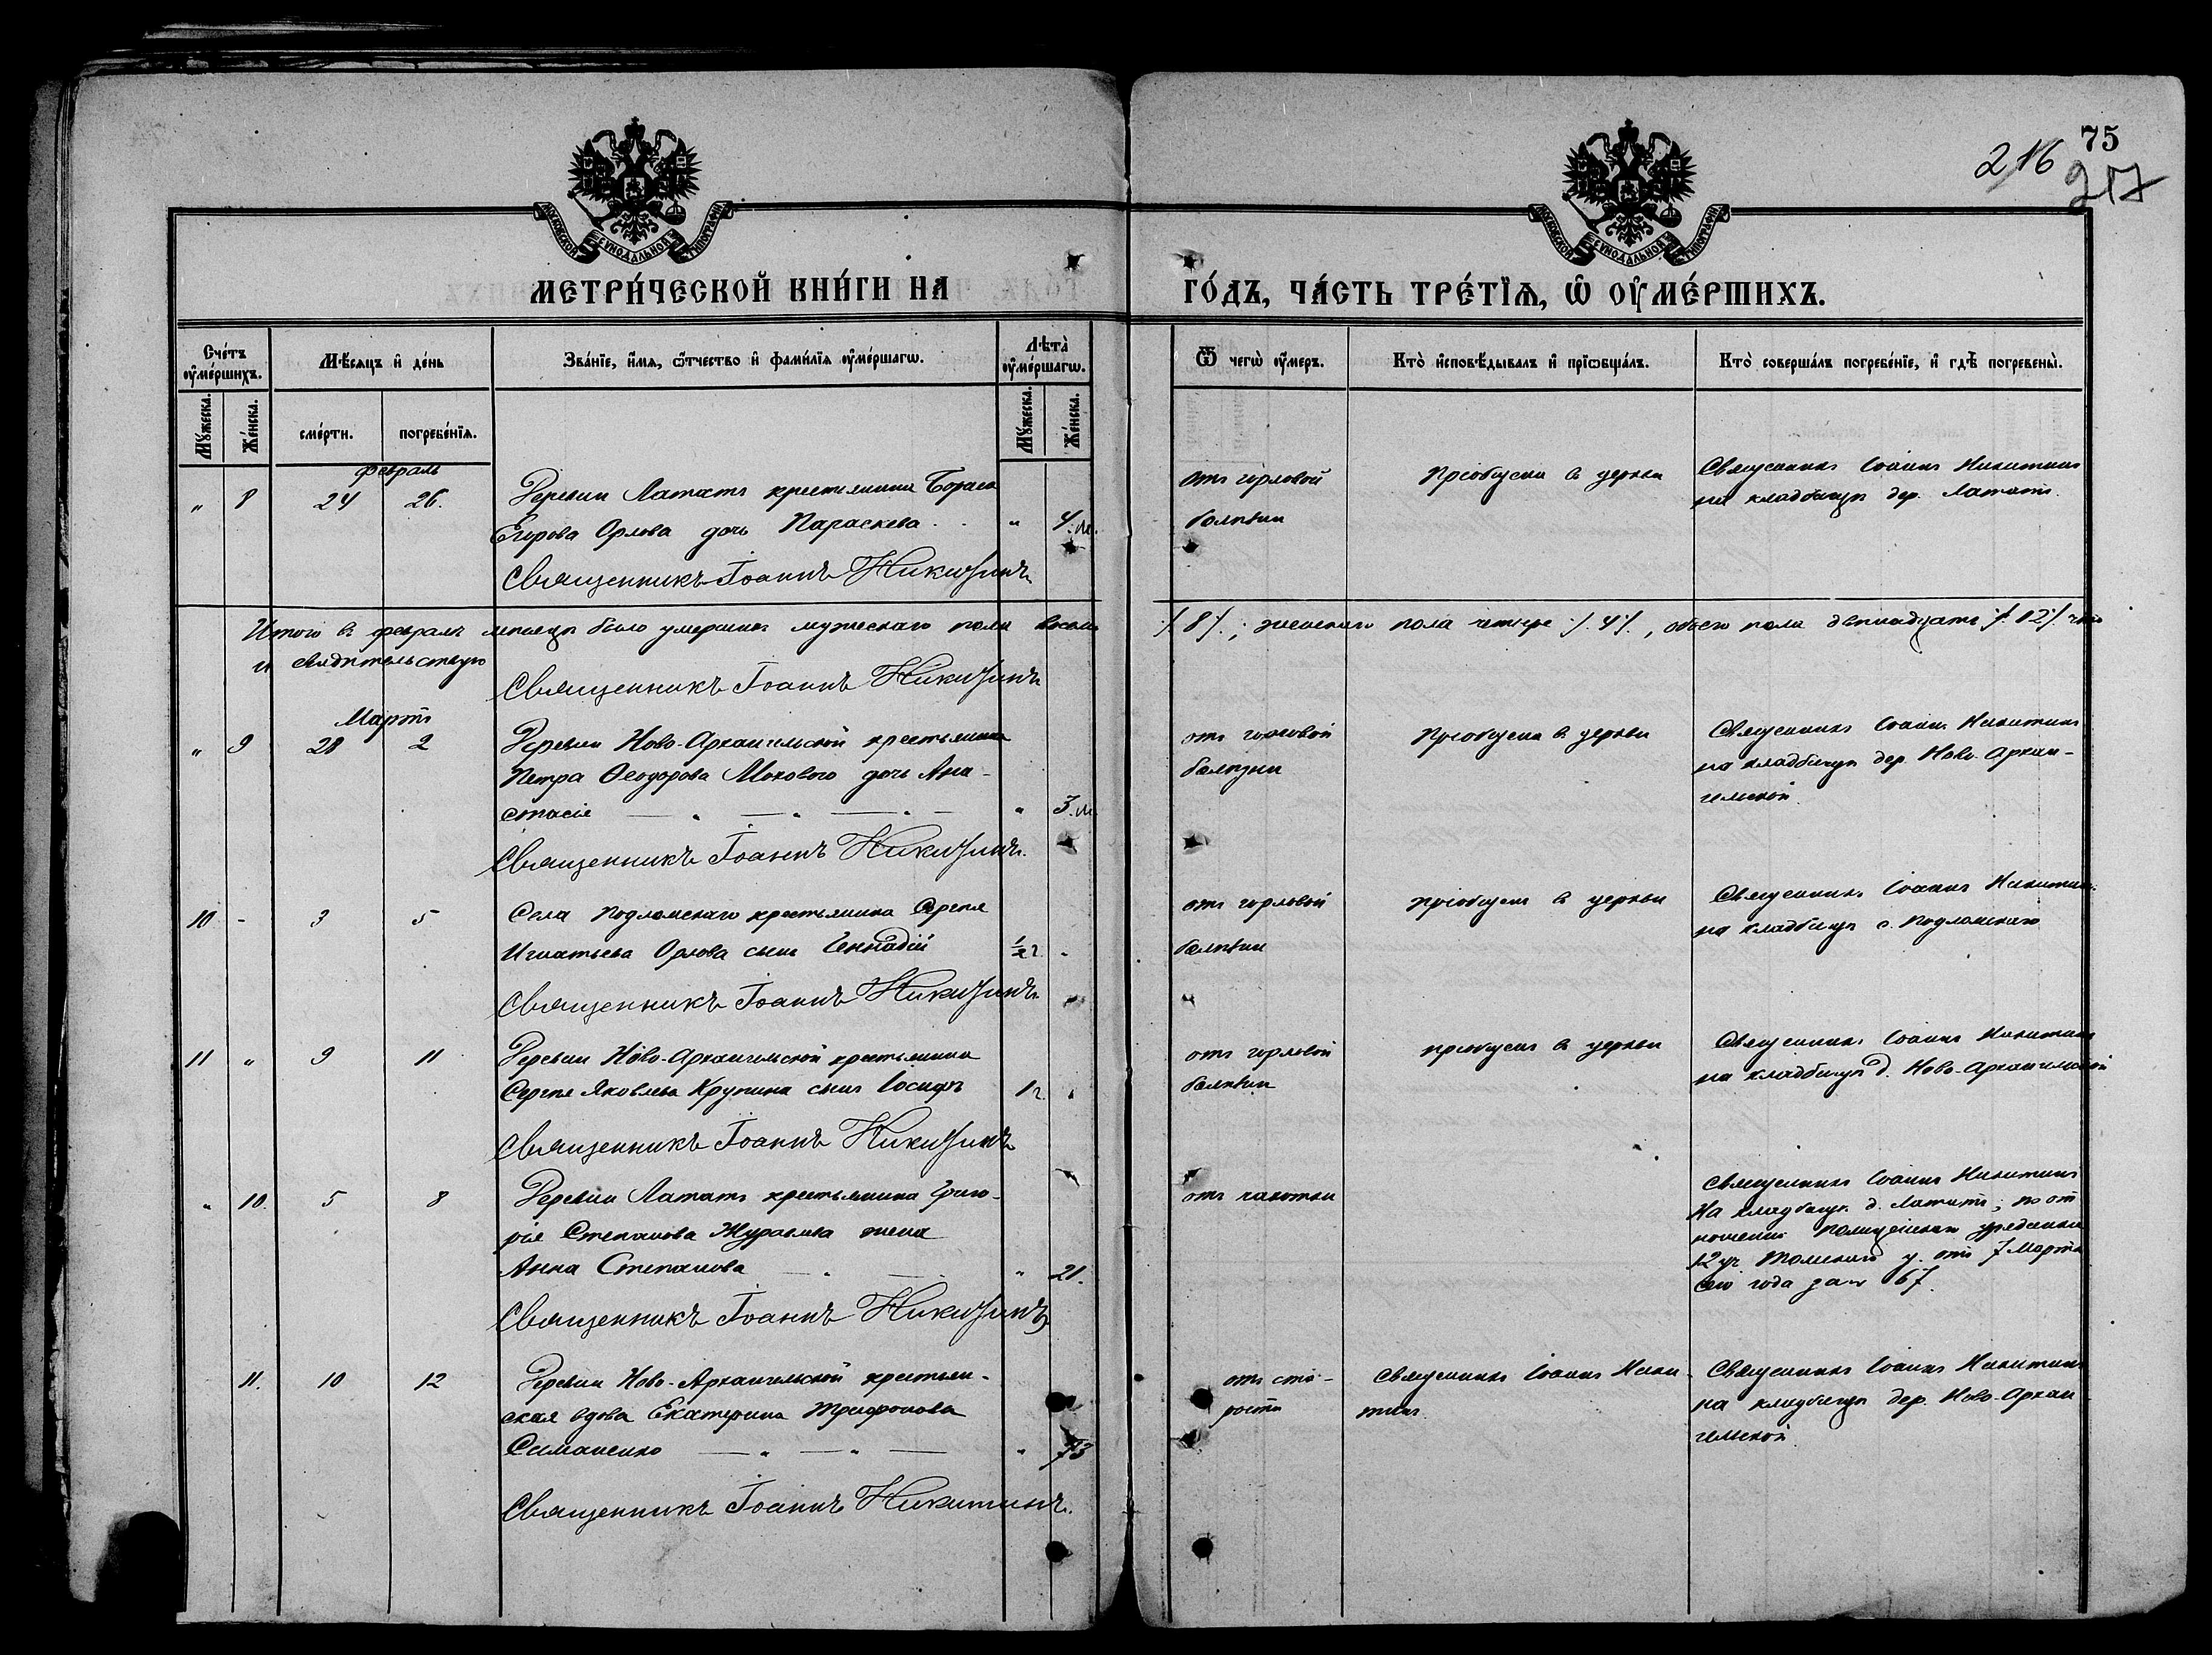 75
216
217
МОСКОВСКОЙ СѴНОДАЛЬНОЙ ТИПОГРАФІИ
МОСКОВСКОЙ СѴНОДАЛЬНОЙ ТИПОГРАФІИ
МЕТРИ́ЧЕСКОЙ КНИ́ГИ НА ГО́ДЪ, ЧА́СТЬ ТРЕ́ТІѦ, Ѡ ОУ҆МЕ́РШИХЪ.
Сче́тъ оу҆ме́ршихъ.
Мѣ́сяцъ и҆ де́нь
Зва́нїе, и҆́мѧ, ѻ҆́тчество и҆ фами́лїѧ оу҆ме́ршагѡ.
Лѣ́та оу҆ме́ршагѡ.
Ѿ чегѡ̀ оу҆́меръ.
Кто̀ и҆сповѣ́дывалъ и҆ прїѡбща́лъ.
Кто̀ соверша́лъ погребе́нїе, и҆ гдѣ̀ погребены̀.
Мꙋ́жеска. Же́нска.
сме́рти. погребе́нїѧ.
Мꙋ́жеска. Же́нска.
Февраль
" 8 24 26. Деревни Лататъ крестьянина Бориса
Егорова Орлова дочь Параскева " 4 м.
Священникъ Іоаннъ Никитинъ
отъ горловой
болѣзни
Пріобщена в церкви
Священникъ Іоаннъ Никитинъ
на кладбищѣ дер. Лататъ.
Итого в февралѣ мѣсяцѣ было умершихъ мужескаго пола восемь /. 8 /.; женскаго пола четыре /. 4 /., обоего пола двѣнадцать /. 12 /. что
и свидѣтельствую
Священникъ Іоаннъ Никитинъ
Мартъ
" 9 28 2 Деревни Ново-Архангельской крестьянина
Петра Ѳеодорова Мохового дочь Ана-
стасія " 3 м.
Священникъ Іоаннъ Никитинъ.
отъ горловой
болѣзни
Пріобщена в церкви
Священникъ Іоаннъ Никитинъ
на кладбищѣ дер. Ново-Архан-
гельской.
10 - 3 5 Села Подломскаго крестьянина Сергѣя
Игнатьева Орлова сынъ Геннадій ½ г. "
Священникъ Іоаннъ Никитинъ.
отъ горловой
болѣзни
пріобщенъ в церкви
Священникъ Іоаннъ Никитинъ
на кладбищѣ с. Подломскаго
11 " 9 11 Деревни Ново-Архангельской крестьянина
Сергѣя Яковлева Крупина сынъ Іосифъ 1 г. "
Священникъ Іоаннъ Никитинъ
отъ горловой
болѣзни
пріобщенъ в церкви
Священникъ Іоаннъ Никитинъ
на кладбищѣ д. Ново-Архангельской
" 10. 5 8 Деревни Лататъ крестьянина Григо-
рія Степанова Журавлева жена
Анна Степанова " 21.
Священникъ Іоаннъ Никитинъ
отъ чахотки
Священникъ Іоаннъ Никитинъ
На кладбищѣ д. Лататъ; по от
ношенію полицейскаго урядника
12 уч. Томскаго у. отъ 7 Марта
сего года за № 67.
11. 10 12 Деревни Ново-Архангельской крестьян-
ская вдова Екатерина Трифонова
Симаненко " 73
Священникъ Іоаннъ Никитинъ.
отъ ста-
рости
Священникъ Іоаннъ Ники-
тинъ.
Священникъ Іоаннъ Никитинъ
на кладбищѣ дер. Ново-Архан
гельской